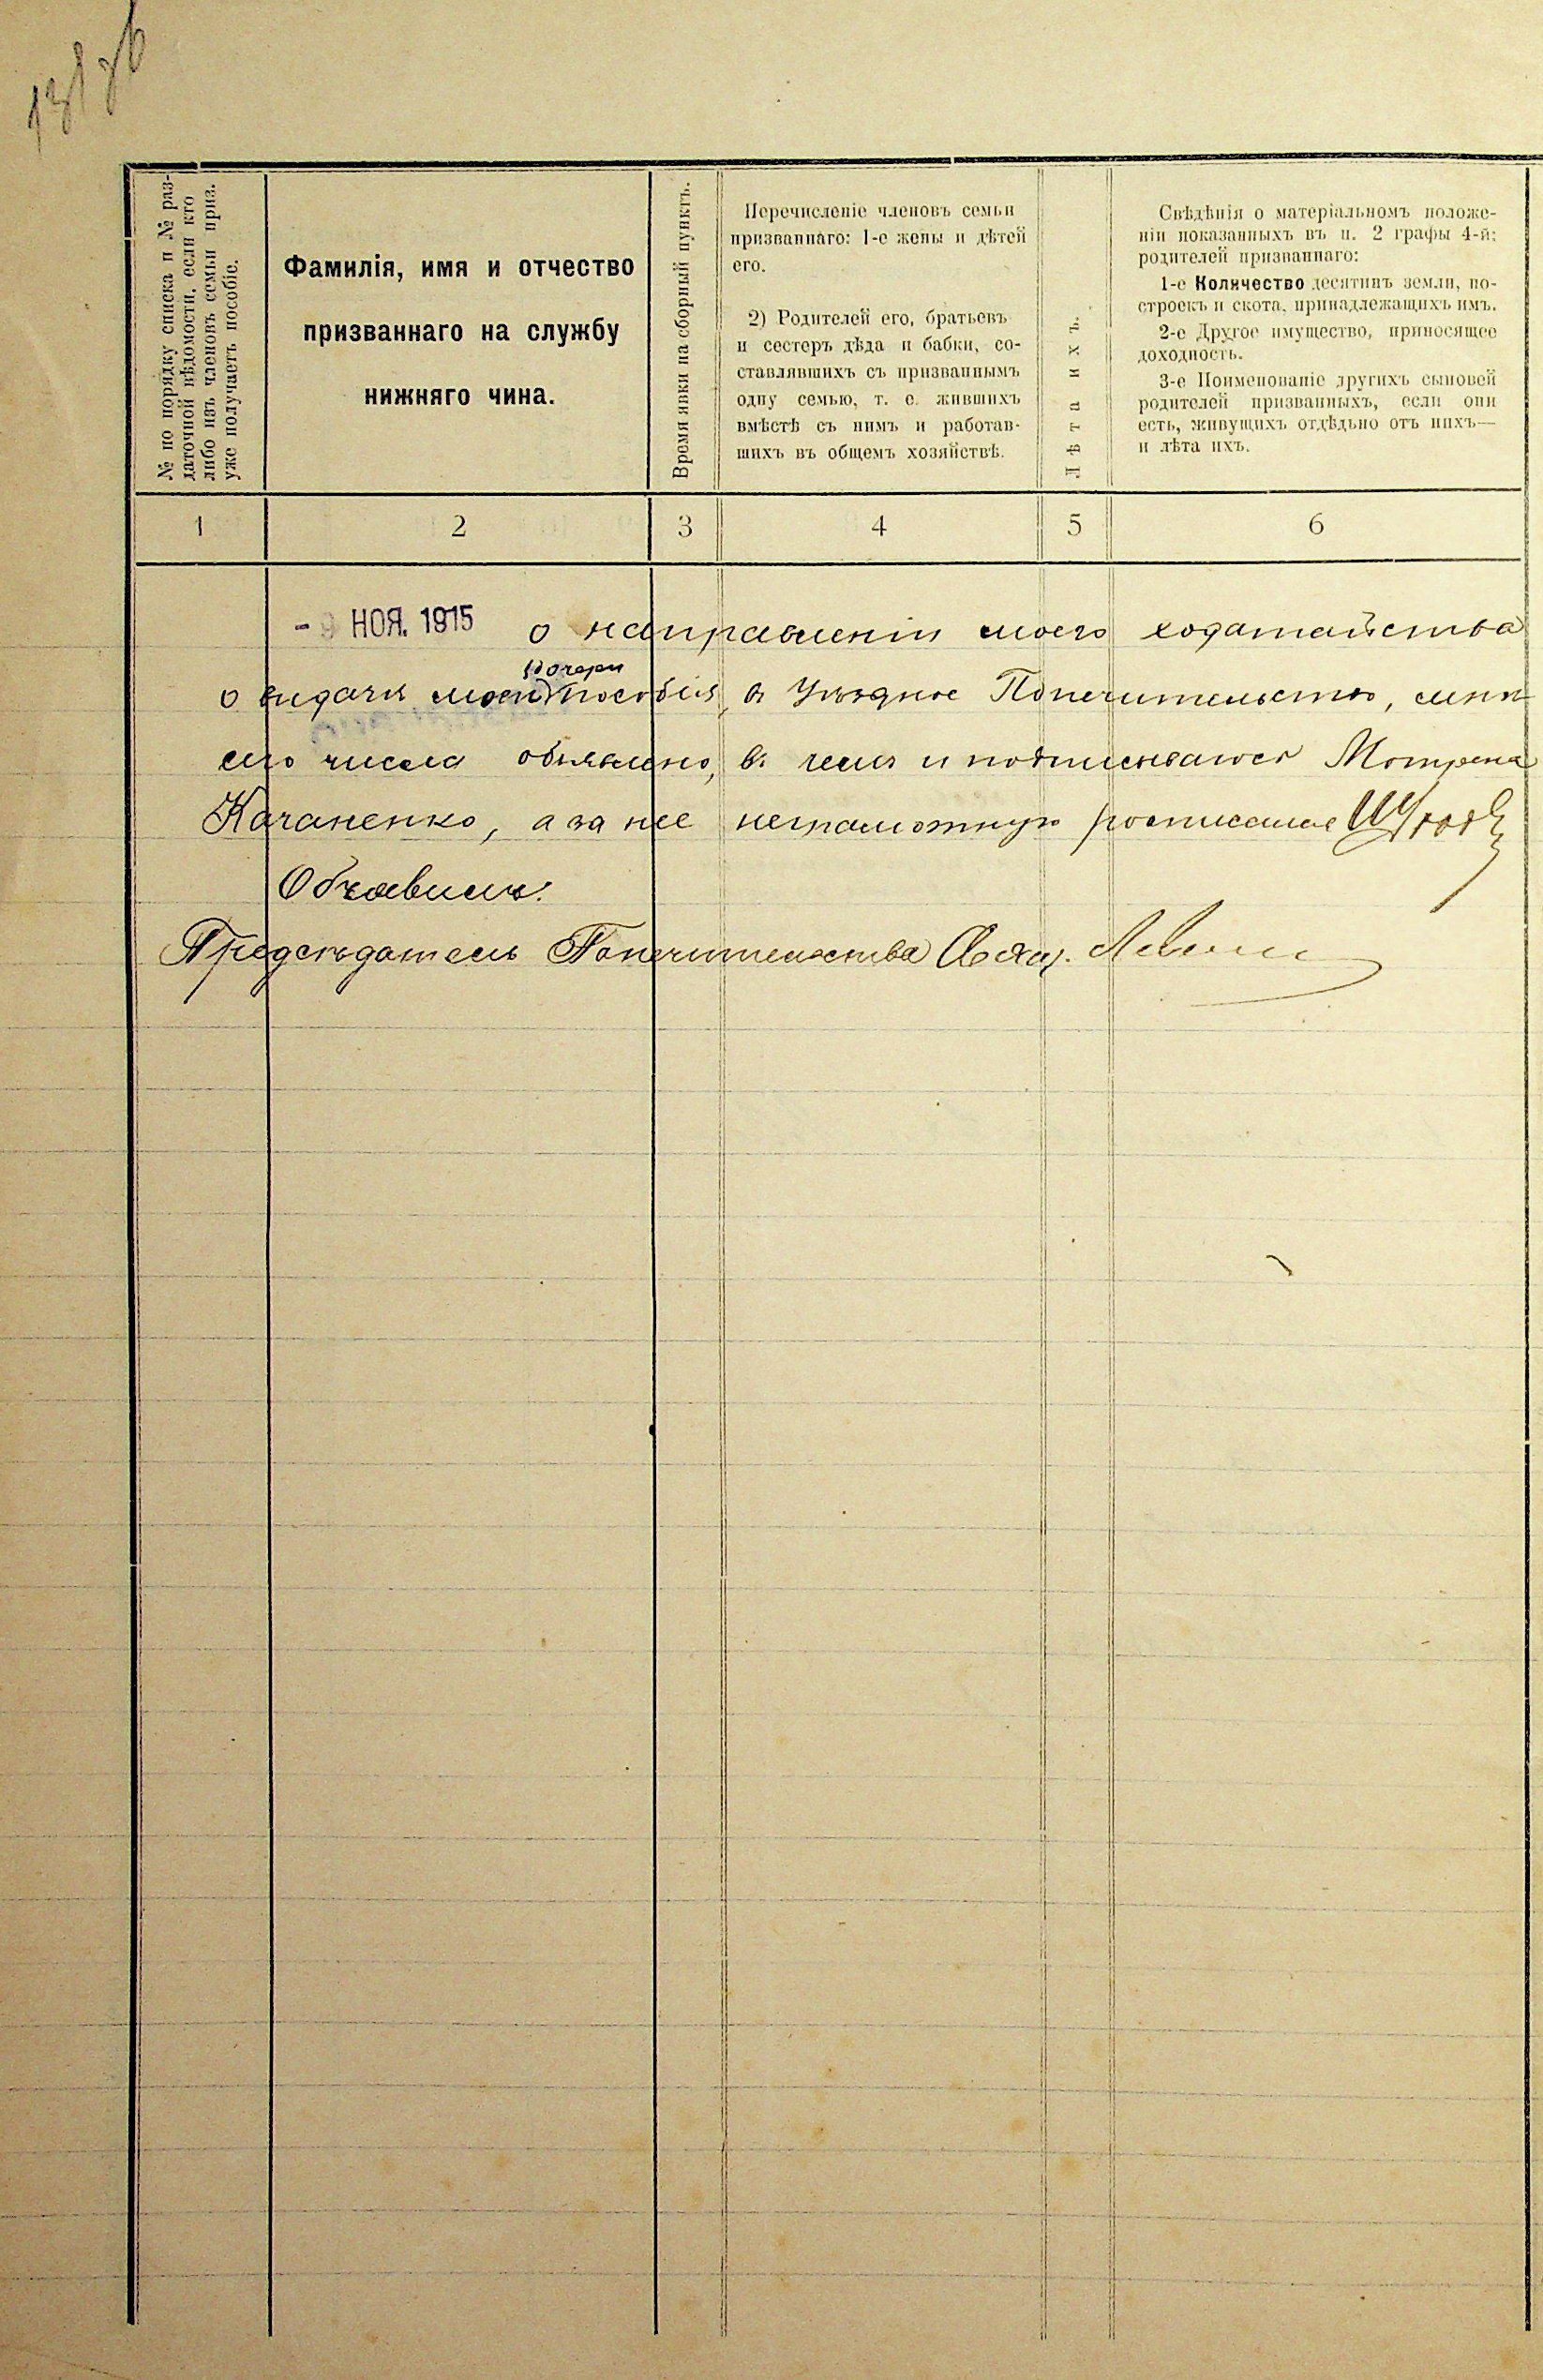 № по порядку списка и № раз-
даточной вѣдомости, если кто
либо изъ членовъ семьи приз.
уже получаетъ пособіе.
Фамилія, имя и отчество
призваннаго на службу
нижняго чина.
Время явки на сборный пунктъ.
Перечисленіе членовъ семьи
призваннаго: 1-е жены и дѣтей
его.
2) Родителей его, братьевъ
и сестеръ дѣда и бабки, со-
ставлявшихъ съ призваннымъ
одну семью, т. е. жившихъ
вмѣстѣ съ нимъ и работав-
шихъ въ общемъ хозяйствѣ.
Лѣта ихъ.
Свѣдѣнія о матеріальномъ положе-
ніи показанныхъ въ п. 2 графы 4-й:
родителей призваннаго:
1-е Количество десятинъ земли, по-
строекъ и скота, принадлежащихъ имъ.
2-е Другое имущество, приносящее
доходность.
3-е Поименованіе другихъ сыновей
родителей призванныхъ, если они
есть, живущихъ отдѣльно отъ нихъ—
и лѣта ихъ.
1 2 3 4 5 6
- 9 НОЯ. 1915 о направленіи моего ходатайства
дочери
о видачи моей пособія, в Уѣздное Попечительство, мнѣ
сего числа объявлено, в чемъ и подписываюсь Мотрена
Качаненко, а за нее неграмотную росписался
Объявилъ:
Предсѣдатель Попечительства